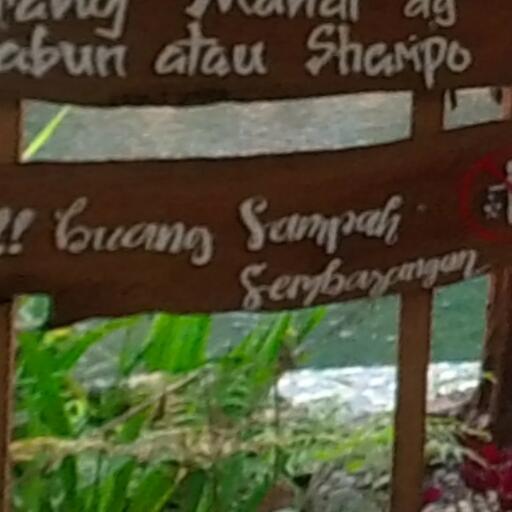 rang Mandi dg
abun atau Shampo
!! buang Sampah
Sembarangan